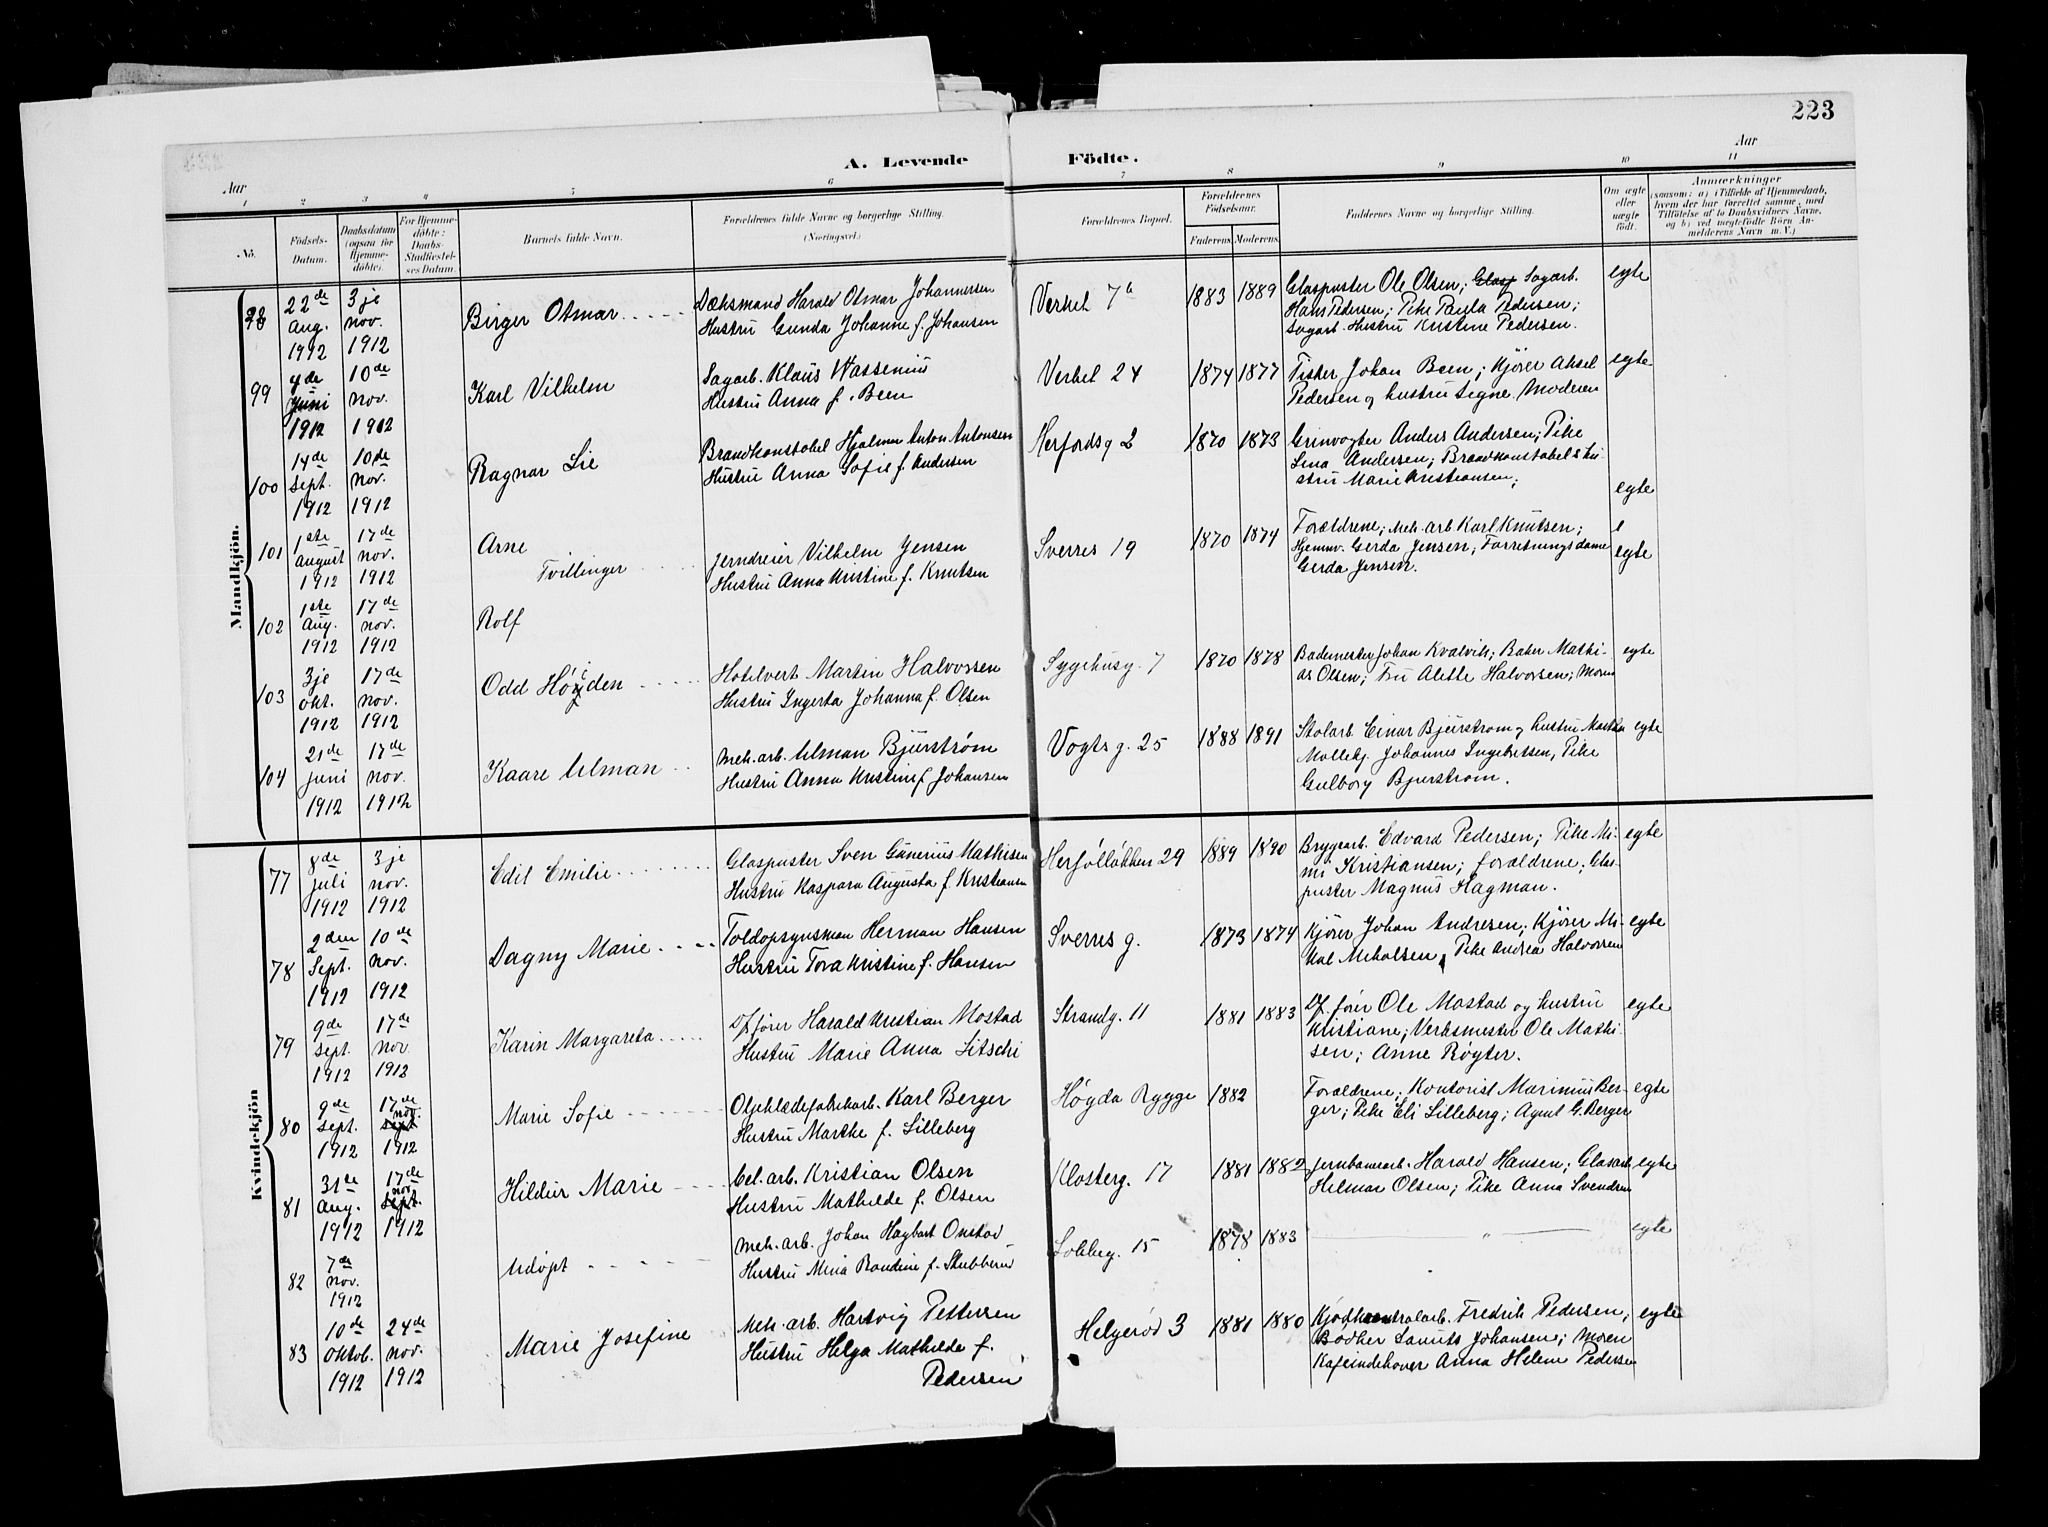 223
A. Levende Födte.
Aar
Aar
1 2 3 4 5 6 7 8 9 10 11
No.
Födsels-Datum.
Daabsdatum (ogsaa for Hjemmedöbte).
For Hjemmedöbte: Daabs-Stadfæstelses Datum.
Barnets fulde Navn.
Forældrenes fulde Navne og borgerlige Stilling.
(Næringsvei.)
Forældrenes Bopæl.
Forældrenes Födselsaar.
Faderens. Moderens.
Faddernes Navne og borgerlige Stilling.
Om ægte eller uægte födt.
Anmærkninger
(saasom: a) i Tilfælde af Hjemmedaab,
hvem der har forrettet samme, med
Tilföielse af to Daabsvidners Navne,
og b) ved uægtefödte Börn Anmelderens Navn m. V.)
Mandkjön.
98 22de Aug. 1912 3je nov. 1912 Birger Otmar Dæksmand Harald Otmar Johannersen
Hustru Gunda Johanne f. Johansen
Verket 7b 1883 1889 Glaspuster Ole Olsen; Glasp Sagarb.
Hans Pedersen; Pike Paula Pedersen;
Sagarb. Hustru Kristine Pedersen. egte
99 4de Juni 1912 10de nov. 1912 Karl Vilhelm Sagarb. Klaus Wassenius
Hustru Anna f. Been
Verket 24 1874 1877 Fisker Johan Been; Kjører Aksel
Pedersen og hustru Signe. Moderen egte
100 14de Sept. 1912 10de nov. 1912 Ragnar Lie Brandkonstabel Hjalmar Anton Antonsen
Hustru Anna Sofie f. Andersen
Herfordsg 2 1870 1873 Grinvogter Anders Andersen; Pike
Lina Andersen; Brandkonstabel & hu-
stru Marie Kristiansen; egte
101 1ste august 1912 17de nov. 1912 Arne
Tvillinger
Jerndreier Vilhelm Jensen
Hustru Anna Kristine f. Knutsen
Sverres 19 1870 1874 Forældrene; Mek. arb Karl Knutsen;
Hjemmv. Gerda Jensen; Forretningsdame
Gerda Jensen. egte
102 1ste Aug. 1912 17de nov. 1912 Rolf
103 3je okt. 1912 17de nov. 1912 Odd Høiden Hotelvert Martin Halvorsen
Hustru Ingerta Johanna f. Olsen
Sygehusg. 7 1870 1878 Bademester Johan Kvalvik; Baker Mathi-
as Olsen; Fru Alette Halvorsen; Moren egte
104 21de juni 1912 17de nov. 1912 Kaare Ulman Mek. arb. Ulman Bjurstrøm
Hustru Anna Kristine f Johansen
Vogts g. 25 1888 1891 Stolarb. Einar Bjurstrøm og hustru Martha
Møllekj. Johannes Ingebretsen, Pike
Gulborg Bjurstrøm. egte
Kvindekjön
77 8de juli 1912 3je nov. 1912 Edit Emilie Glaspuster Sven Gunerius Mathisen
Hustru Kaspara Augusta f. Kristiansen
Herfølløkken 29 1889 1890 Bryggarb. Edvard Pedersen; Pike Mi-
mi Kristiansen; forældrene; Glas-
puster Magnus Hagman. egte
78 2den Sept. 1912 10de nov. 1912 Dagny Marie Toldopsynsman Herman Hansen
Hustru Tora Kristine f. Hansen
Sverres g. 1873 1874 Kjører Johan Andresen; Kjører Mi-
kal Nicholsen, Pike Andrea Halvorsen egte
79 9de sept. 1912 17de nov. 1912 Karin Margareta D/f fører Harald Kristian Mostad
Hustru Marie Anna Litschi
Strandg. 11 1881 1883 D/f. fører Ole Mostad og hustru
Kristiane; Verksmester Ole Mathi-
sen; Anne Røgter. egte
80 9de sept. 1912 17de sept nov. 1912 Marie Sofie Oljeklædefabrikarb. Karl Berger
Hustru Marthe f. Lilleberg
Høyda Rygge 1882 Forældrene; Kontorist Marinius Ber-
ger; Pike Eli Lilleberg; Agent G. Berger egte
81 31de Aug. 1912 17de sept. nov. 1912 Hildur Marie Cel. arb. Kristian Olsen
Hustru Mathilde f. Olsen
Klosterg. 17 1881 1882 Jernbanearb. Harald Hansen; Glasarb
Hilmar Olsen; Pike Anna Svendsen egte
82 7de nov. 1912 Udøpt Mek. arb. Johan Hagbart Onstad
Hustru Mina Randine f. Stubberud
Lokkeg. 15 1878 1883 " egte
83 10de oktob. 1912 24de nov. 1912 Marie Josefine Mek. arb. Hartvig Pettersen
Hustru Helga Mathilde f.
Pedersen
Helgerød 3 1881 1880 Kjødkontrolarb. Fredrik Pedersen;
Bødker Laurits Johansen; Moren
Kafeindehaver Anna Helene Pedersen egte